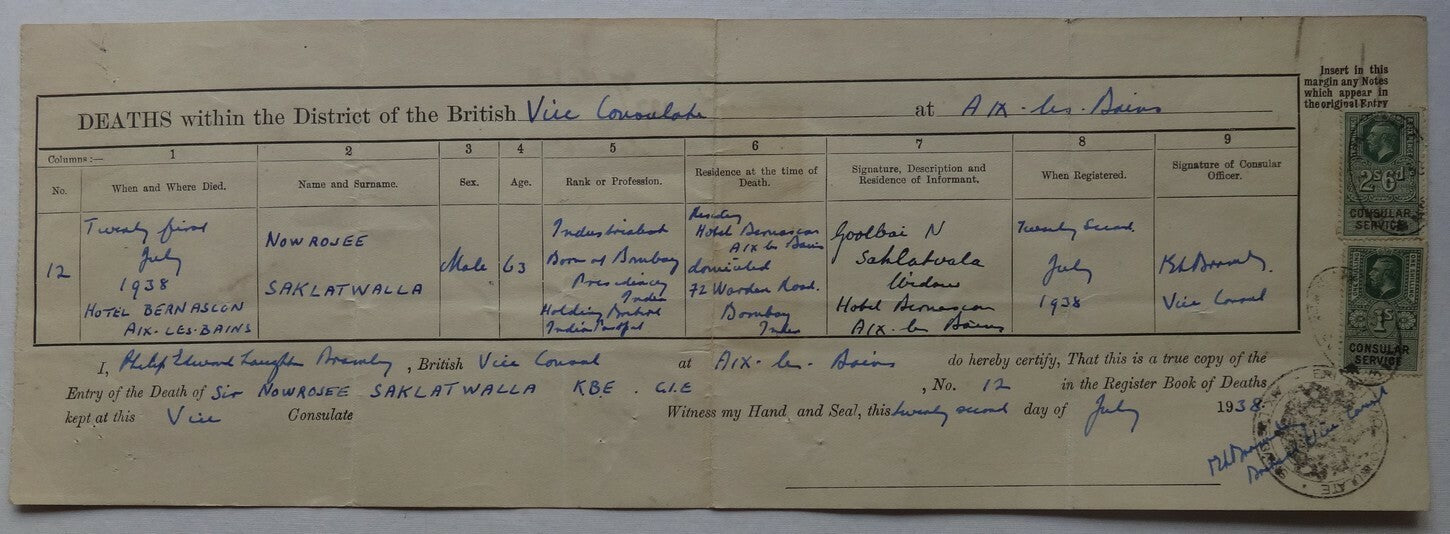 Insert in this
margin any Notes
which appear in
the original Entry
DEATHS within the District of the British Vice Consulate at AIX-les-Bains
Columns:— 1 2 3 4 5 6 7 8 9
No. When and Where Died. Name and Surname. Sex. Age. Rank or Profession. Residence at the time of Death. Signature, Description and Residence of Informant. When Registered. Signature of Consular Officer.
12
Twenty first
July
1938
HOTEL BERNASCON
AIX-LES-BAINS
NOWROSEE
SAKLATWALLA
Male
63
Industrialist
Born at Bombay
Presidency
India
Holding British
Indian Passport
Residing
Hotel Bernascon
AIX les Bains
domiciled
72 Warden Road.
Bombay
India
Goolbai N
Saklatvala
Widow
Hotel Bernascon
AIX-les Bains
Twenty Second.
July
1938
Vice Consul
I, Philip Edward Laughton Bramley, British Vice Consul at AIX-les-Bains do hereby certify, That this is a true copy of the
Entry of the Death of Sir NOWROSEE SAKLATWALLA KBE. C.I.E , No. 12 in the Register Book of Deaths
kept at this Vice Consulate Witness my Hand and Seal, this twenty second day of July 1938.
British Vice Consul
2s 6d
CONSULAR
SERVICE
1s
CONSULAR
SERVICE